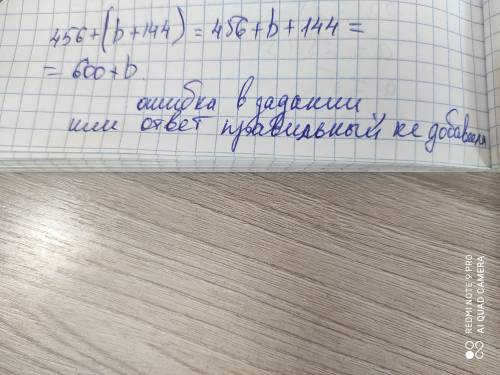 456+(b+144)=456+b+144=
=600+b.
ошибка в задании
или ответ правильный не добавили
REDMI NOTE 9 PRO
AI QUAD CAMERA